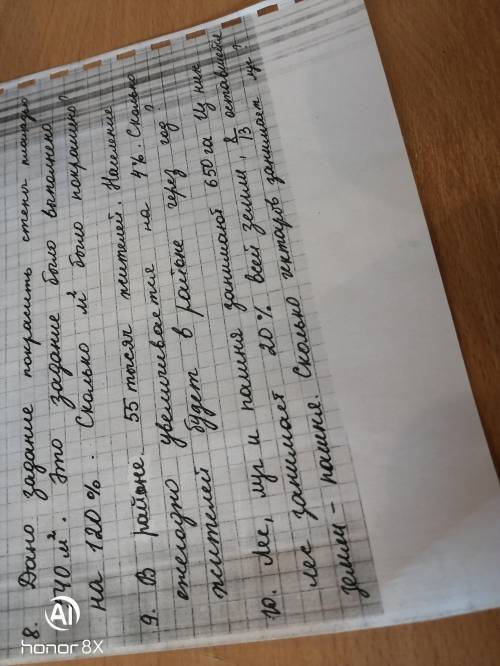 8. Дано задание покрасить стены площадью
40 м². Это задание было выполнено
на 120%. Сколько м² было покрашено?
9. В районе 55 тысяч жителей. Население
ежегодно увеличивается на 4%. Сколько
жителей будет в районе через год?
10. Лес, луг и пашня занимают 650 га. Из них
лес занимает 20% всей земли, 8/13 оставшейся
земли - пашня. Сколько гектаров занимает луг?
AI
honor 8X